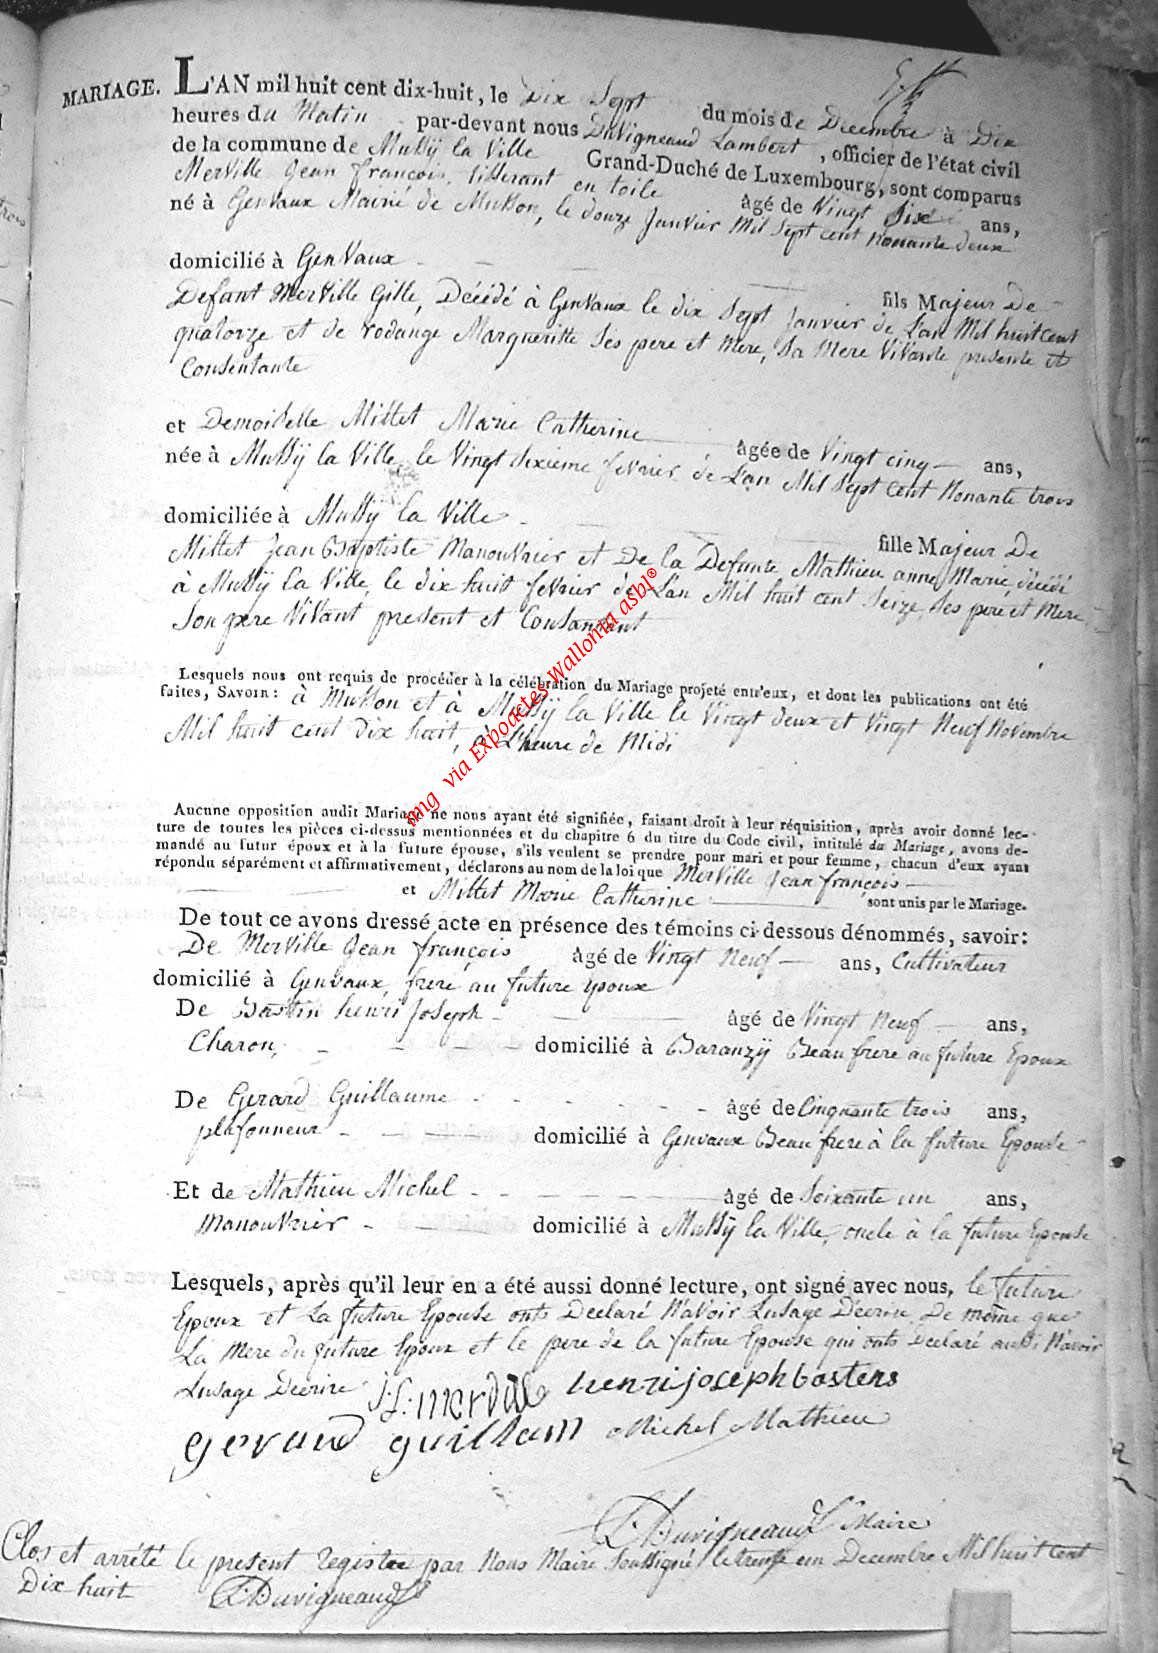 MARIAGE. L'AN mil huit cent dix-huit, le Dix Sept du mois de Decembre à Dix
heures du Matin par-devant nous Duvigneaud Lambert, officier de l'état civil
de la commune de Mussÿ la Ville Grand-Duché de Luxembourg, sont comparus
Merville Jean françois, tisserant en toile âgé de Vingt Six ans,
né à Genvaux Mairie de Musson, le douze Janvier Mil Sept cent Nonante deux
domicilié à GenVaux
fils Majeur De
Defant Merville Gille, Décédé à Genvaux le dix Sept Janvier de L'an Mil huit cent
quatorze et de rodange Margueritte Ses pere et Mere, Sa Mere Vivante presente et
Consentante
et Demoiselle Mittet Marie Catherine âgée de Vingt cinq ans,
née à Mussÿ la Ville le Vingt Sixieme fevrier de L'an Mil Sept Cent Nonante trois
domiciliée à Mussÿ la Ville
fille Majeur De
Mittet Jean Baptiste Manouvrier et De la Defunte Mathieu anne Marie, décédé
à Mussÿ la Ville, le dix huit fevrier de L'an Mil huit cent Seize, Ses pere et Mere
Son pere Vivant present et Consantent
Lesquels nous ont requis de procéder à la célébration du Mariage projeté entr'eux, et dont les publications ont été
faites, SAVOIR: à Musson et à Mussÿ la Ville le Vingt deux et Vingt Neuf Novembre
Mil huit cent Dix huit, à L'heure de Midi
Aucune opposition audit Mariage ne nous ayant été signifiée, faisant droit à leur réquisition, après avoir donné lec-
ture de toutes les pièces ci-dessus mentionnées et du chapitre 6 du titre du Code civil, intitulé du Mariage, avons de-
mandé au futur époux et à la future épouse, s'ils veulent se prendre pour mari et pour femme, chacun d'eux ayant
répondu séparément et affirmativement, déclarons au nom de la loi que Merville Jean françois
et Mittet Marie Catherine sont unis par le Mariage.
De tout ce avons dressé acte en présence des témoins ci-dessous dénommés, savoir:
De Merville Jean françois âgé de Vingt Neuf ans, Cultivateur
domicilié à Genvaux, frere au future Epoux
De Bastin henri Joseph âgé de Vingt Neuf ans,
Charon, domicilié à Baranzÿ Beau frere au future Epoux
De Gerard Guillaume âgé de Cinquante trois ans,
plafonneur domicilié à Genvaux Beau frere à la future Epouse
Et de Mathieu Michel âgé de Soixante un ans,
Manouvrier domicilié à Mussÿ la Ville, oncle à la future Epouse
Lesquels, après qu'il leur en a été aussi donné lecture, ont signé avec nous, le future
Epoux et La future Epouse onts Declaré N'avoir Lusage Decrire De même que
La Mere du future Epoux et le pere de la future Epouse qui onts Declaré aussi N'avoir
Lusage Decrire J:f: merville henri joseph bastens
gerard guillam Michel Mathieu
L: Duvigneaud Maire
Clos et arrété le present Registre par Nous Maire Soussigné le trente un Decembre Mil huit cent
Dix huit L: Duvigneaud
img via Expoactes Wallonia asbl®